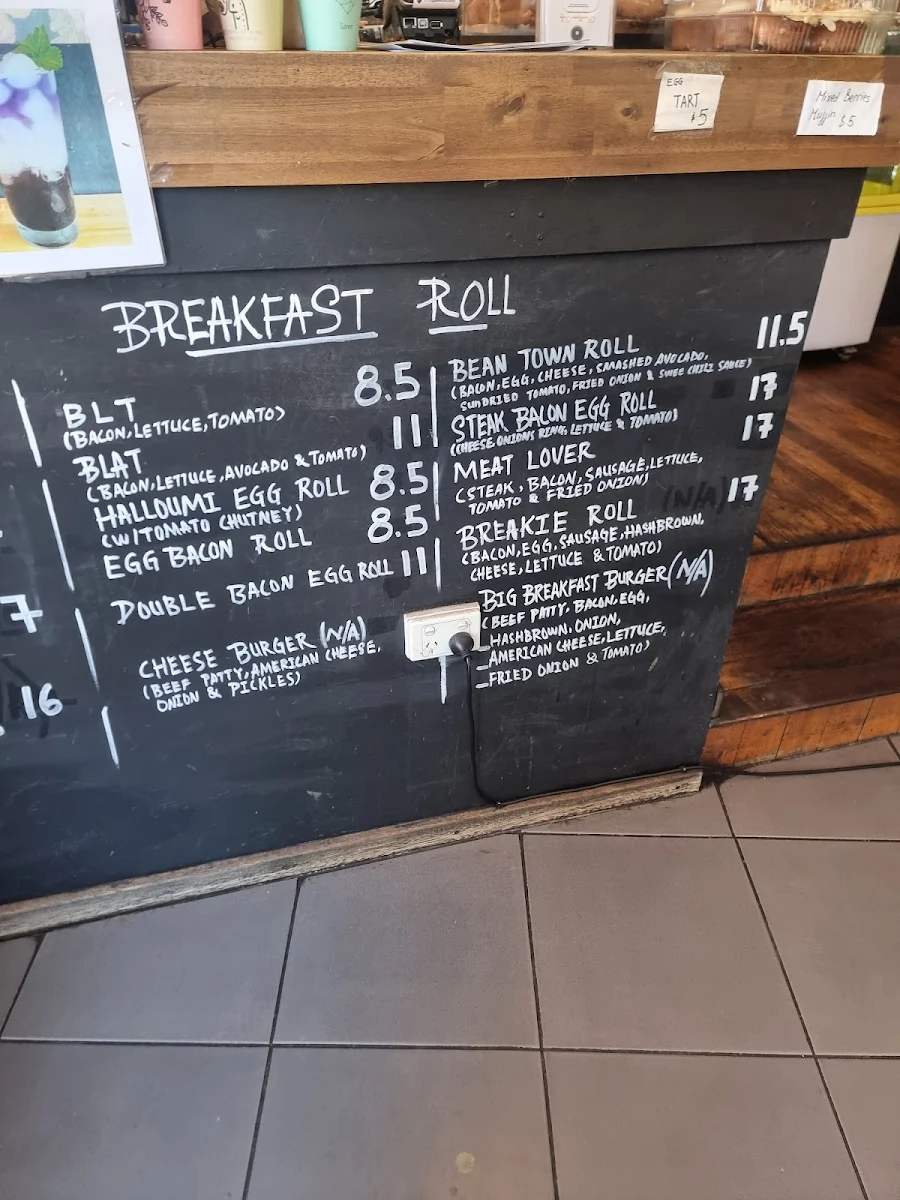 EGG
TART
$5
Mixed Berries
Muffin $5
BREAKFAST ROLL
BLT 8.5
(BACON, LETTUCE, TOMATO)
BLAT 11
(BACON, LETTUCE, AVOCADO & TOMATO)
HALLOUMI EGG ROLL 8.5
(W/TOMATO CHUTNEY)
EGG BACON ROLL 8.5
DOUBLE BACON EGG ROLL 11
CHEESE BURGER (N/A)
(BEEF PATTY, AMERICAN CHEESE,
ONION & PICKLES)
BEAN TOWN ROLL 11.5
(BACON, EGG, CHEESE, SMASHED AVOCADO,
SUNDRIED TOMATO, FRIED ONION & SWEE CHILI SAUCE)
STEAK BACON EGG ROLL 17
(CHEESE, ONIONS RING, LETTUCE & TOMATO)
MEAT LOVER 17
(STEAK, BACON, SAUSAGE, LETTUCE,
TOMATO & FRIED ONION)
BREAKIE ROLL (N/A) 17
(BACON, EGG, SAUSAGE, HASHBROWN,
CHEESE, LETTUCE & TOMATO)
BIG BREAKFAST BURGER (N/A)
(BEEF PATTY, BACON, EGG,
HASHBROWN, ONION,
AMERICAN CHEESE, LETTUCE,
FRIED ONION & TOMATO)
7
16